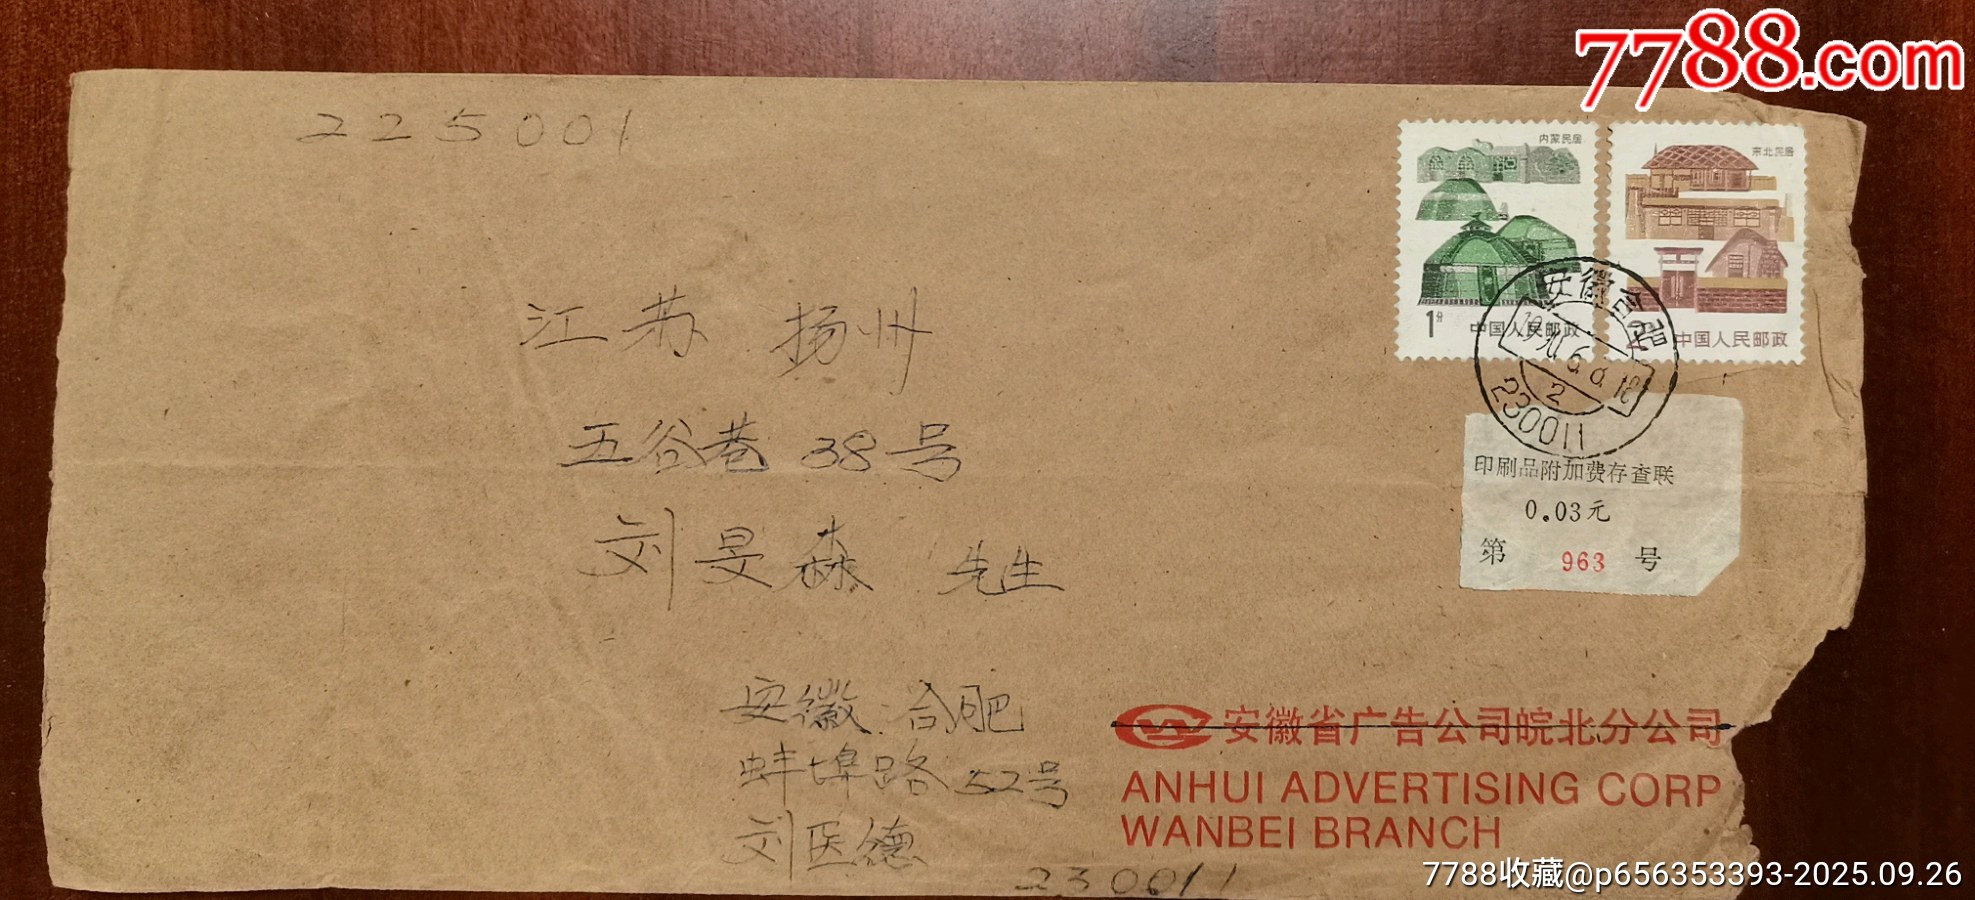 7788.com
225001
内蒙民居
东北民居
1分
中国人民邮政
中国人民邮政
安徽合肥
2
230011
江苏 扬州
五谷巷 38号
刘旻森 先生
印刷品附加费存查联
0.03元
第 963 号
安徽 合肥
蚌埠路 52号
刘医德
230011
安徽省广告公司皖北分公司
ANHUI ADVERTISING CORP
WANBEI BRANCH
7788收藏@p656353393-2025.09.26